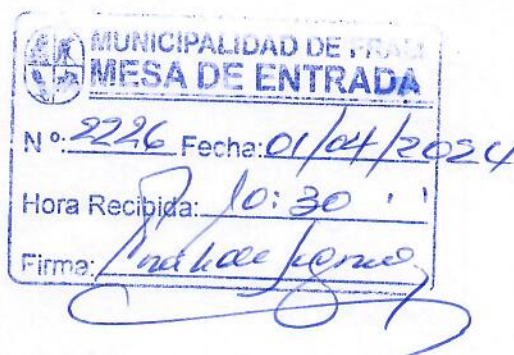 MUNICIPALIDAD DE FRAM
MESA DE ENTRADA
N º: 2226 Fecha: 01/04/2024
Hora Recibida: 10:30
Firma: